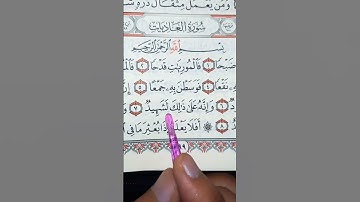 وَمَن يَعْمَلْ مِثْقَالَ ذَرَّةٍ
سُورَةُ الْعَادِيَاتِ
بِسْمِ اللَّهِ الرَّحْمَٰنِ الرَّحِيمِ
ضَبْحًا ١ فَالْمُورِيَٰتِ قَدْحًا ٢
نَقْعًا ٤ فَوَسَطْنَ بِهِۦ جَمْعًا ٥
٦ وَإِنَّهُۥ عَلَىٰ ذَٰلِكَ لَشَهِيدٌ ٧
٨ ۞ أَفَلَا يَعْلَمُ إِذَا بُعْثِرَ مَا فِي